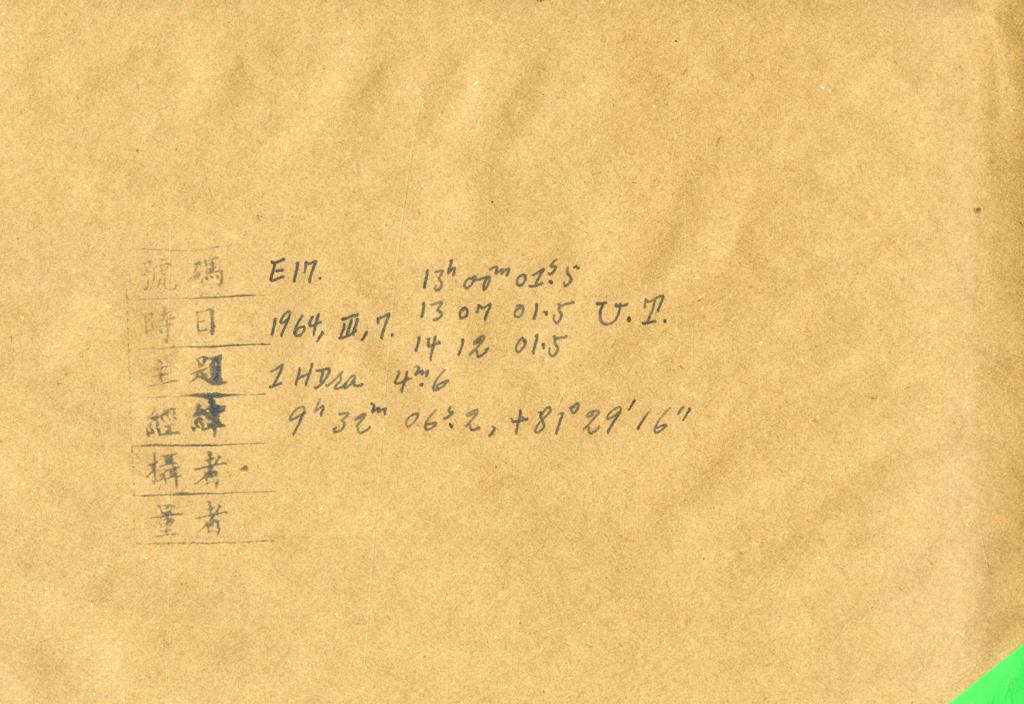 號碼 E17. 13ʰ 00ᵐ 01ˢ.5
13 07 01.5 U.T.
時日 1964, III, 7.
14 12 01.5
主題 1 HDra 4ᵐ.6
經緯 9ʰ 32ᵐ 06ˢ.2, +81° 29' 16"
攝者
量者